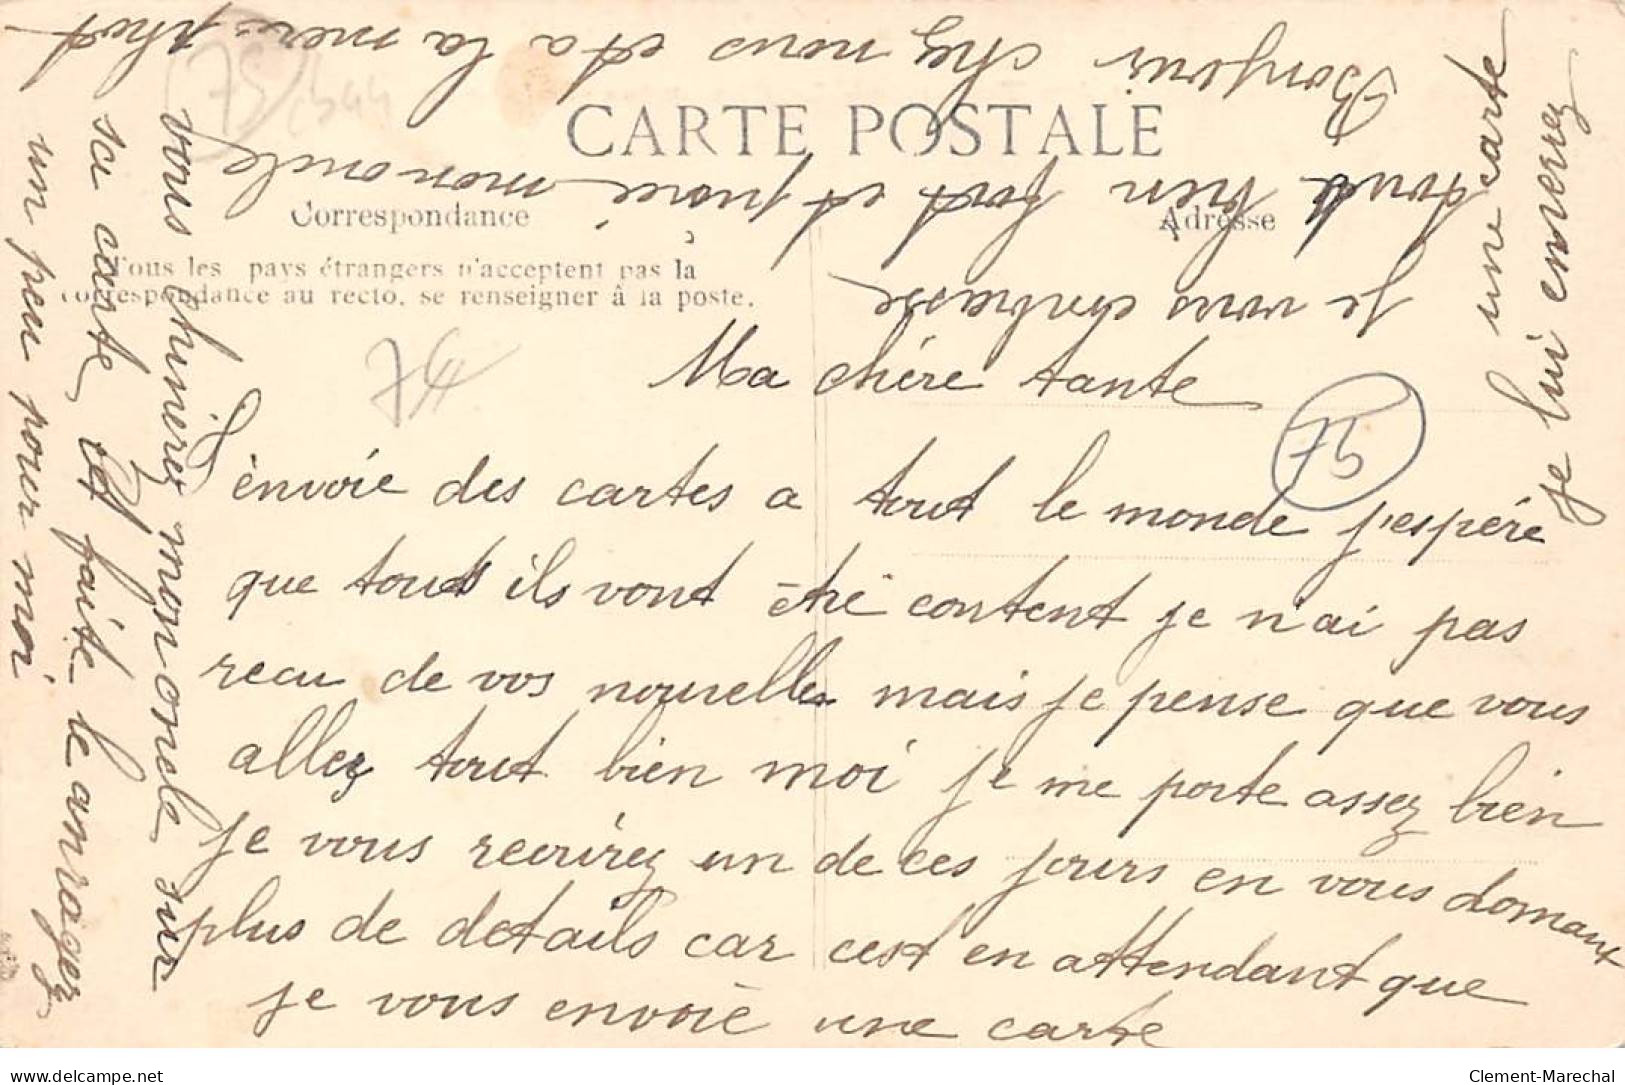 CARTE POSTALE
Correspondance
Adresse
Tous les pays étrangers n'acceptent pas la
correspondance au recto, se renseigner à la poste.
Ma chère tante
J'envoie des cartes a tout le monde j'espére
que touts ils vont étré content je n'ai pas
recu de vos nouvelles mais je pense que vous
allez tout bien moi je me porte assez bien
je vous recrirez un de ces jours en vous domant
plus de details car cest en attendant que
je vous envoie une carte
je vous embrasse
toute bien fort et moné mon oncle
Bonjour chez nous et a la mere phot
vous chinerez mon oncle sur
sa carte et faite le anrager
un peu pour moi
une carte
je lui enverez
75
74
75
Clement-Marechal
delcampe.net